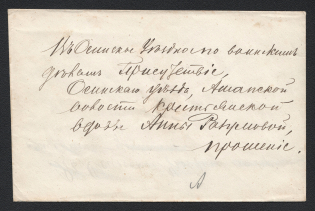 Въ Осинское Уѣздное по воинскимъ
дѣламъ Присутствіе,
Осинскаго уѣзда, Ашапской
волости крестьянской
вдовы Анны
прошеніе.